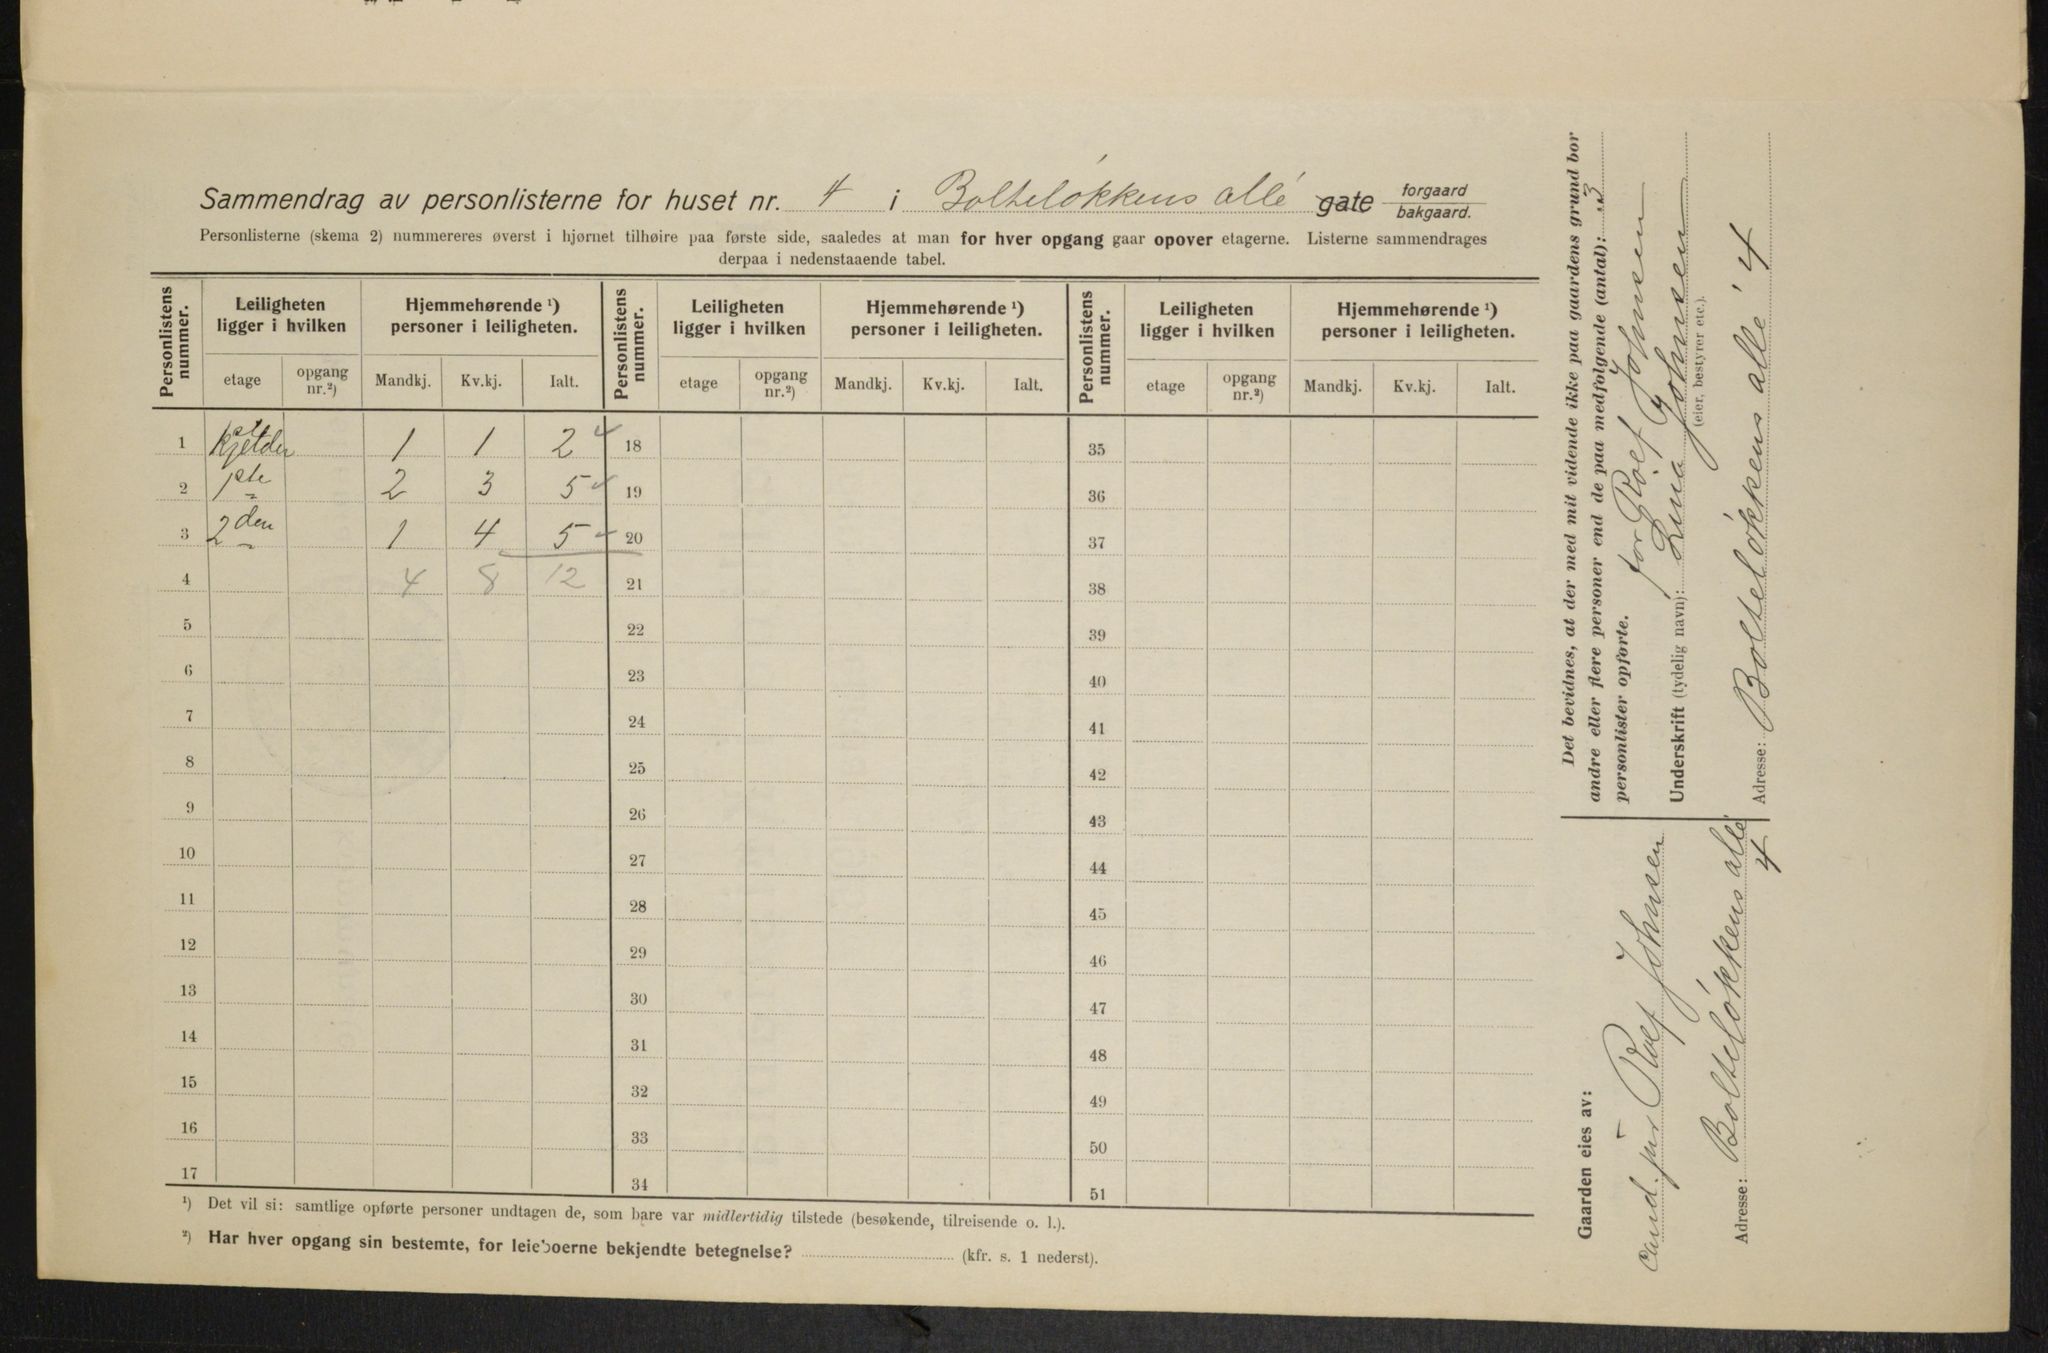 Sammendrag av personlisterne for huset nr. 4 i Bolteløkkens allé gate forgaard
bakgaard.
Personlisterne (skema 2) nummereres øverst i hjørnet tilhøire paa første side, saaledes at man for hver opgang gaar opover etagerne. Listerne sammendrages
derpaa i nedenstaaende tabel.
Personlistens nummer. Leiligheten ligger i hvilken Hjemmehørende ¹) personer i leiligheten. Personlistens nummer. Leiligheten ligger i hvilken Hjemmehørende ¹) personer i leiligheten. Personlistens nummer. Leiligheten ligger i hvilken Hjemmehørende ¹) personer i leiligheten.
etage opgang nr.²) Mandkj. Kv.kj. Ialt. etage opgang nr.²) Mandkj. Kv.kj. Ialt. etage opgang nr.²) Mandkj. Kv.kj. Ialt.
1 Kjelder 1 1 2 18 35
2 1ste 2 3 5 19 36
3 2den 1 4 5 20 37
4 4 8 12 21 38
5 22 39
6 23 40
7 24 41
8 25 42
9 26 43
10 27 44
11 28 45
12 29 46
13 30 47
14 31 48
15 32 49
16 33 50
17 34 51
¹) Det vil si: samtlige opførte personer undtagen de, som bare var midlertidig tilstede (besøkende, tilreisende o. l.).
²) Har hver opgang sin bestemte, for leieboerne bekjendte betegnelse? (kfr. s. 1 nederst).
Det bevidnes, at der med mit vidende ikke paa gaardens grund bor
andre eller flere personer end de paa medfølgende (antal): 3
personlister opførte.
for Rolf Johnsen
Underskrift (tydelig navn): Lina Johnsen
(eier, bestyrer etc.).
Adresse: Bolteløkkens alle' 4
Gaarden eies av:
Cand. jur Rolf Johnsen
Adresse: Bolteløkkens allé
4